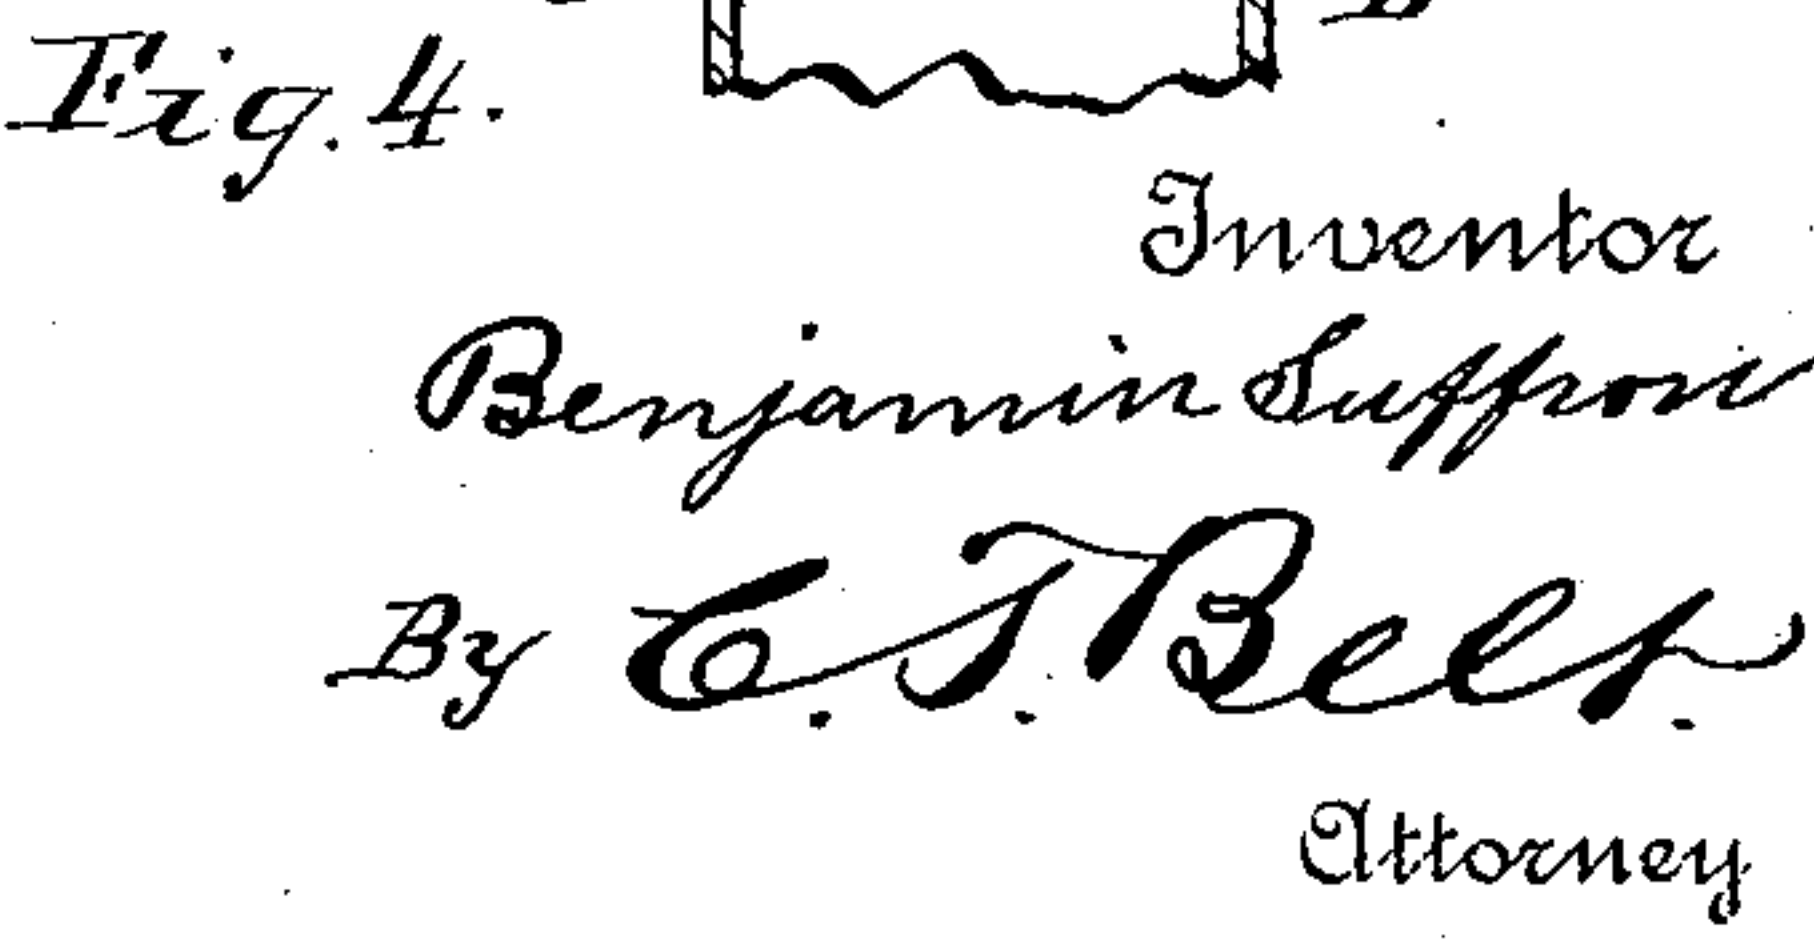 Fig. 4.
Inventor
Benjamin Suffron
By C. T. Belt.
Attorney